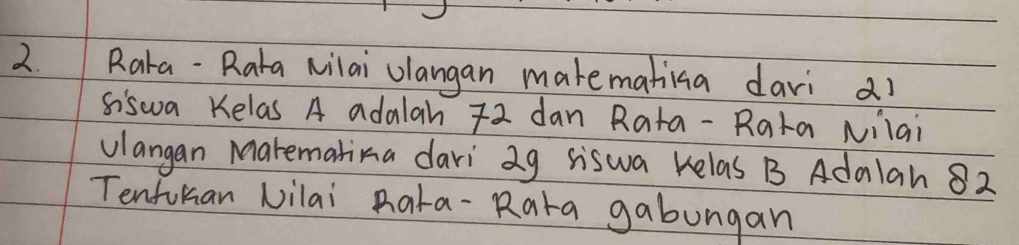 2. Rata - Rata Nilai ulangan matematika dari 21
siswa Kelas A adalah 72 dan Rata - Rata Nilai
ulangan Matematika dari 29 siswa kelas B Adalah 82
Tentukan Nilai Rata - Rata gabungan